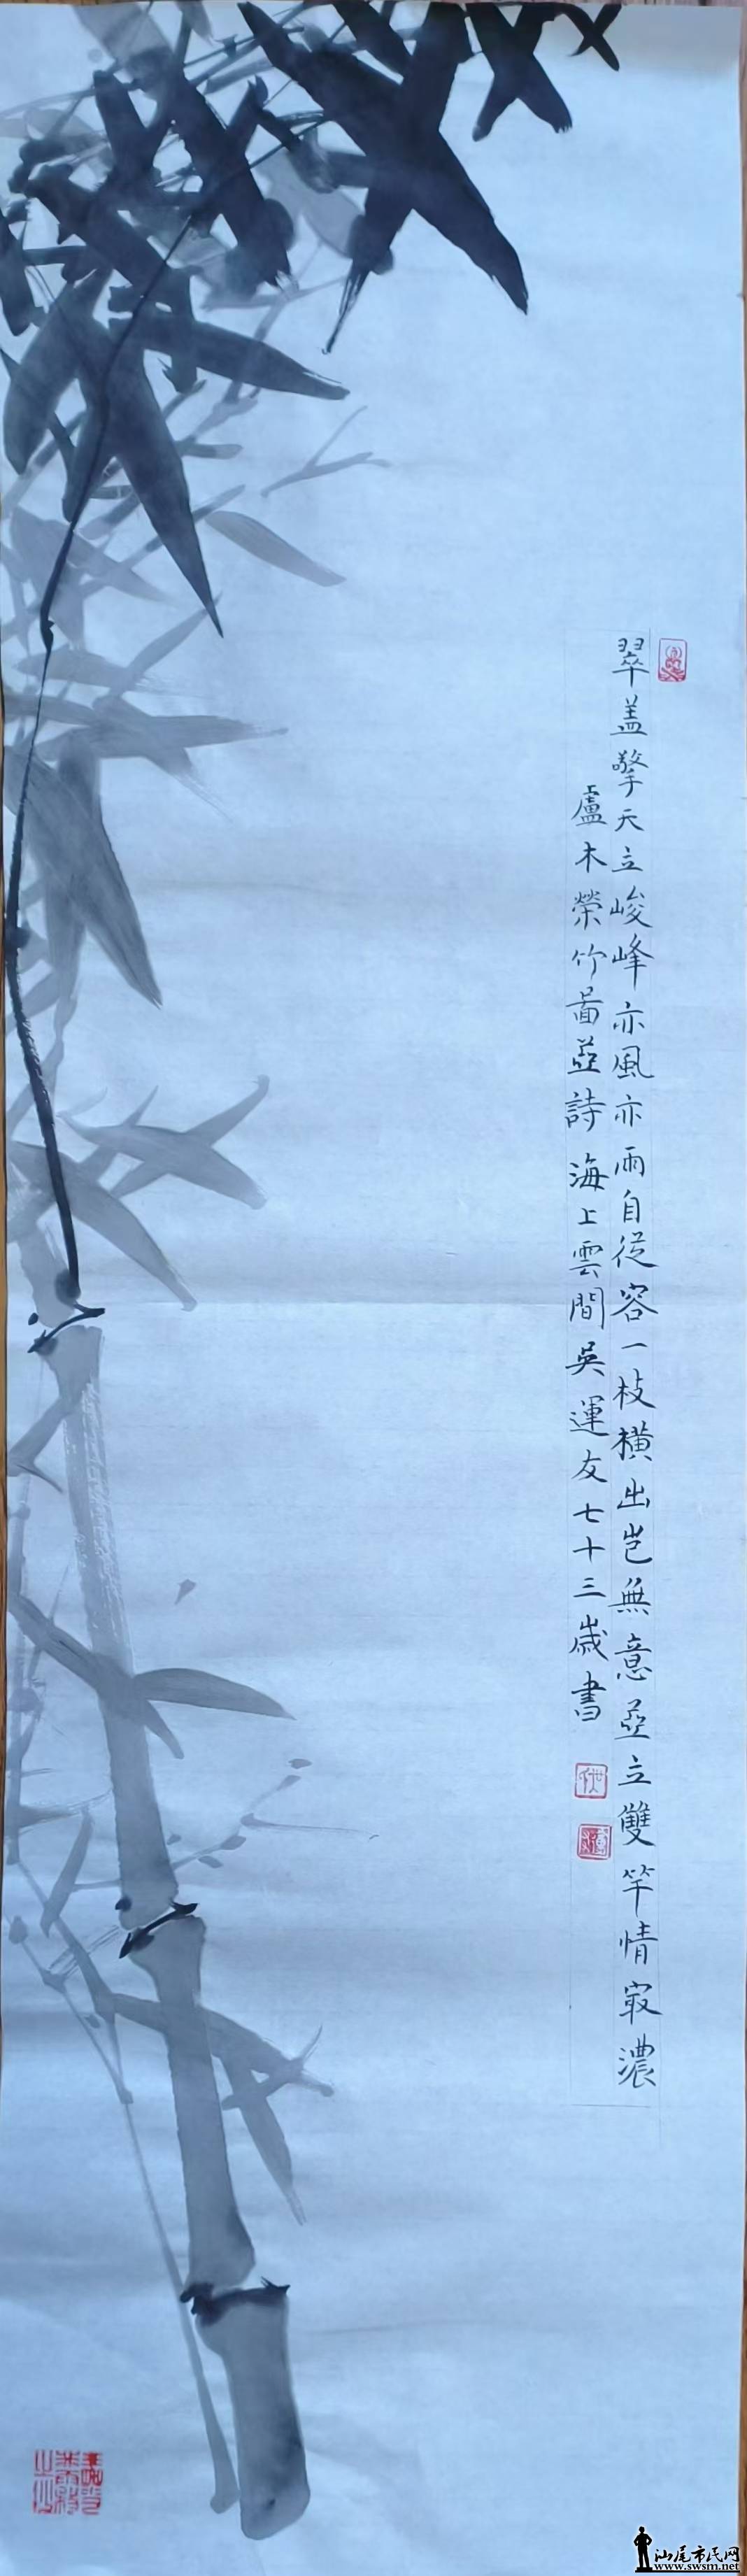 翠盖擎天立峻峰亦風亦雨自從容一枝橫出岂無意並立雙竿情寂濃
盧木榮竹啚並詩 海上雲間吳運友七十三歲書
汕尾市民网
www.swsm.net